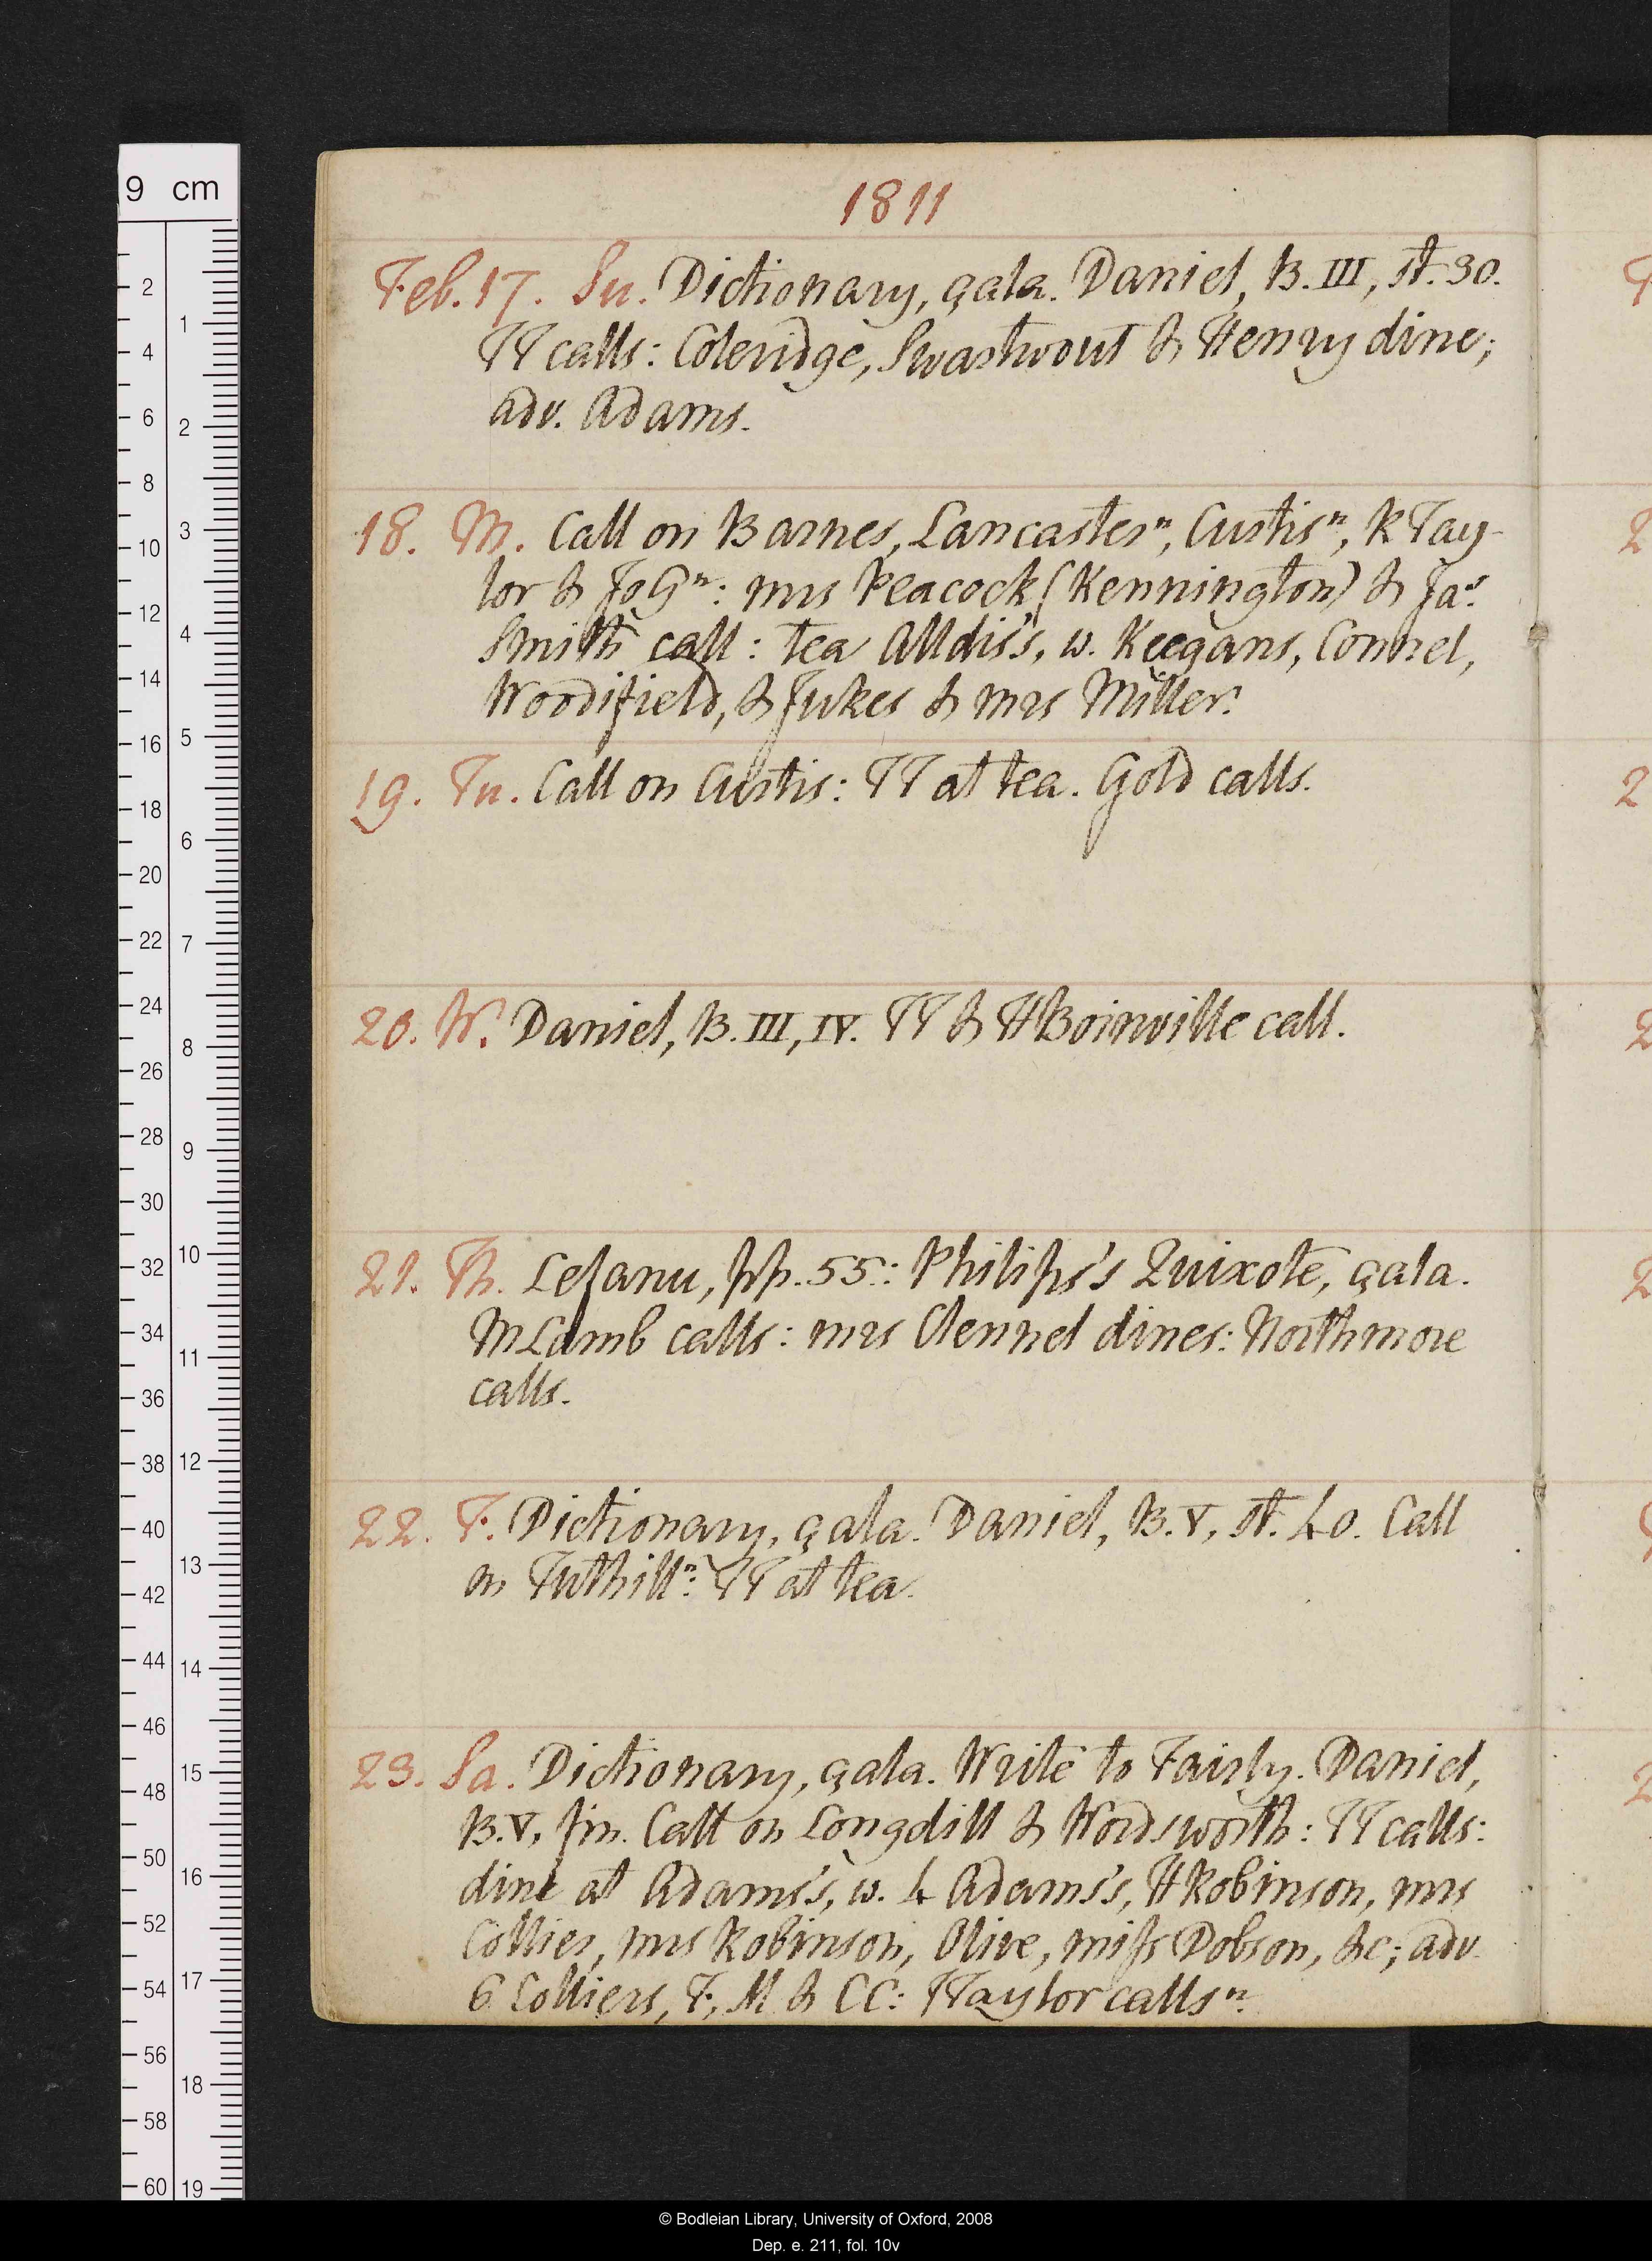 1811
Feb. 17. Su. Dictionary, çala. Daniel, B. III, st. 30.
TT calls: Coleridge, Swartwout & Henry dine;
adv. Adams.
18. M. Call on Barnes, Lancaster ⁿ, Curtis ⁿ, R Tay-
lor & Jo G ⁿ: mrs Peacock (Kennington) & Jaˢ
Smith call: tea Alldis's, w. Keegans, Connel,
Woodifield, & Jukes & mrs Miller.
19. Tu. Call on Curtis: TT at tea. Gold calls.
20. W. Daniel, B. III, IV. TT & H Boinville call.
21. Th. Lefanu, pp. 55: Philips's Quixote, çala.
M Lamb calls: mrs Clennel dines: Northmore
calls.
22. F. Dictionary, çala. Daniel, B. V, st. 40. Call
on Tuthill ⁿ: TT at tea.
23. Sa. Dictionary, çala. Write to Fairly. Daniel,
B. V, fin. Call on Longdill & Wordsworth: TT calls:
dine at Adams's, w. 4 Adams's, H Robinson, mrs
Collier, mrs Robinson, Olive, miss Dobson, &c; adv.
6 Colliers, F, M & CC: T Taylor calls ⁿ.
9 cm
2
4
6
8
10
12
14
16
18
20
22
24
26
28
30
32
34
36
38
40
42
44
46
48
50
52
54
56
58
60
1
2
3
4
5
6
7
8
9
10
11
12
13
14
15
16
17
18
19
© Bodleian Library, University of Oxford, 2008
Dep. e. 211, fol. 10v